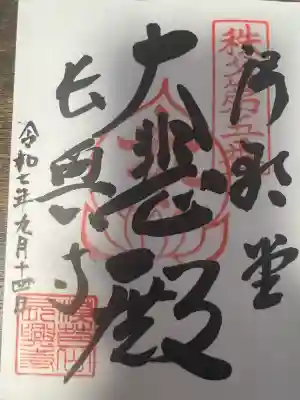 語歌堂
秩父第五番
大悲殿
長興寺
令和七年九月十四日
長興寺